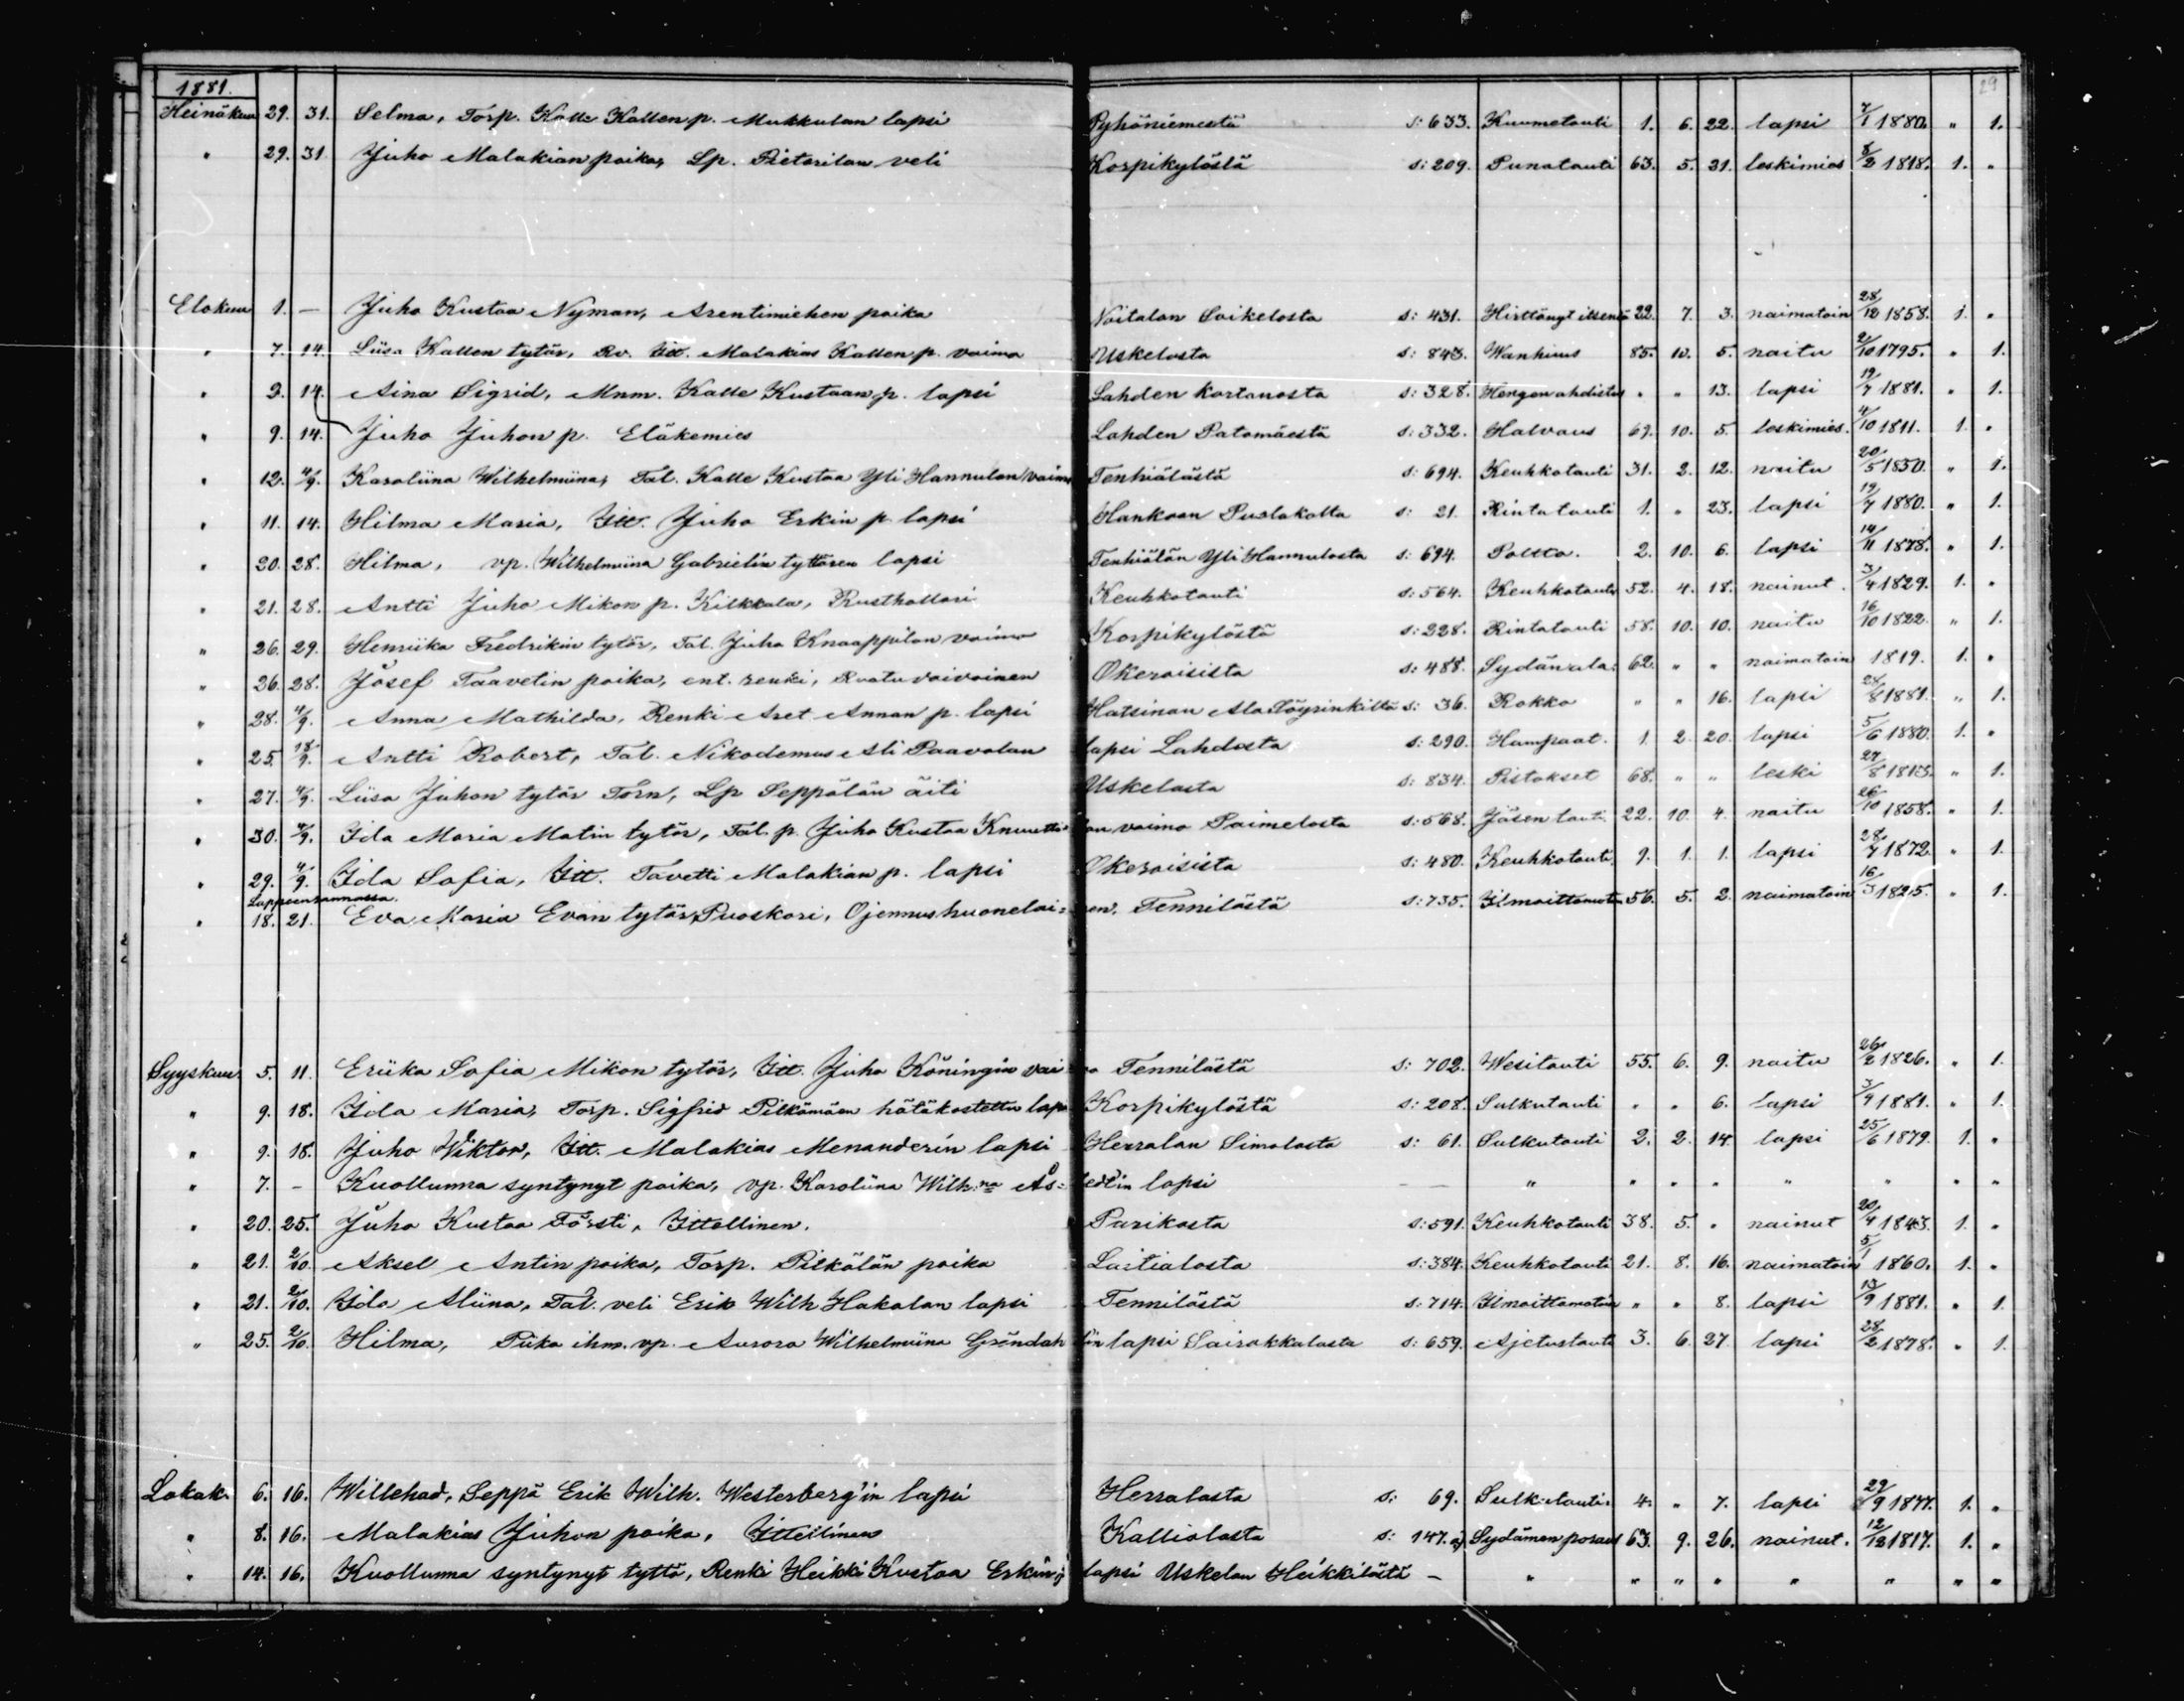 1881. 29
Heinäkuu 29. 31. Selma, Torp. Kalle Kallen p. Mukkulan lapsi Pyhäniemestä s: 633. Kuumetauti 1. 6. 22. lapsi 7/1 1880. " 1.
" 29. 31 Juho Malakian poika, Lp. Pietarilan veli Korpikylästä s: 209. Punatauti 63. 5. 21. leskimies 8/2 1818. 1. "
Elokuu 1. — Juho Kustaa Nyman, Arentimiehen poika Noitalan Soikelosta s: 431. Hirttänyt itsensä 22. 7. 3. naimatoin 28/12 1858. 1. "
" 7. 14. Liisa Kallen tytär, Rv. Itt. Malakias Kallen p. vaimo Uskelasta s: 843. Wanhuus 85. 10. 5. naitu 2/10 1795. " 1.
" 2. 14. Aina Sigrid, Mnm. Kalle Kustaan p. lapsi Lahden kartanosta s: 328. Hengenahdistus " " 13. lapsi 19/7 1881. " 1.
" 9. 14. Juho Juhon p. Eläkemies Lahden Patomäestä s: 332. Halvaus 69. 10. 5. leskimies. 4/10 1811. 1. "
" 12. 4/9. Karoliina Wilhelmiina, Tal. Kalle Kustaa Yli Hannulan vaimo Tenhiälästä s: 694. Keuhkotauti 31. 2. 12. naitu 20/5 1850. " 1.
" 11. 14. Hilma Maria, Itt. Juho Erkin p. lapsi Hankaan s: 21. Rintatauti 1. " 23. lapsi 19/7 1880. " 1.
" 20. 28. Hilma, vp. Wilhelmiina Gabrielin tyttären lapsi Tenhiälän Yli Hannulasta s: 694. Poltto. 2. 10. 6. lapsi 14/11 1878. " 1.
" 21. 28. Antti Juho Mikon p. Kilkkala, Rusthollari Keuhkotauti s: 564. Keuhkotauti 52. 4. 18. nainut. 3/4 1829. 1. "
" 26. 29. Henriika Fredrikin tytär, Tal. Juho Knaappilan vaimo Korpikylästä s: 228. Rintatauti 58. 10. 10. naitu 16/10 1822. " 1.
" 26. 28. Josef Taavetin poika, ent. renki, Ruotuvaivainen Okeroisista s: 488. Sydänala: 62. " " naimatoin 1819. 1. "
" 28. 4/9. Anna Mathilda, Renki Aret Annan p. lapsi Hatsinan s: 36. Rokko " " 16. lapsi 1881. " 1.
" 25. 18/9. Antti Robert, Tal. Nikodemus Ali Paavolan lapsi Lahdesta s: 290. Hampaat. 1. 2. 20. lapsi 5/6 1880. 1. "
" 27. 4/9. Liisa Juhon tytär Torn, Lp Seppälän äiti Uskelasta s: 834. Pistokset 68. " " leski 27/8 1813. " 1.
" 30. 4/9. Ida Maria Matin tytär, Tal. p. Juho Kustaa Knuuttilan vaimo Paimelasta s: 568. Jäsen tauti 22. 10. 4. naitu 26/10 1858. " 1.
" 29. 4/9. Ida Sofia, Itt. Tavetti Malakian p. lapsi Okeroisista s: 480. Keuhkotauti 9. 1. 1. lapsi 28/7 1872. " 1.
Lappeenrannassa.
" 18. 21. Eva Maria Evan tytär Puoskari, Ojennushuonelai=nen. Tennilästä s: 735. Ilmoittamatta 56. 5. 2. naimatoin 16/3 1825. " 1.
Syyskuu 5. 11. Eriika Sofia Mikon tytär, Itt. Juho Köningin vaimo Tennilästä s: 702. Wesitauti 55. 6. 9. naitu 26/2 1826. " 1.
" 9. 18. Ida Maria, Torp. Sigfrid Pilkämäen hätäkastettu lapsi Korpikylästä s: 208. Sulkutauti " " 6. lapsi 3/9 1881. " 1.
" 9. 18. Juho Wiktor, Itt. Malakias Menanderin lapsi Herralan Simolasta s: 61. Sulkutauti 2. 2. 14. lapsi 25/6 1879. 1. "
" 7. - Kuolluna syntynyt poika, vp. Karoliina Wilh:na Ås=tedt'in lapsi — " " " " " " " "
" 20. 25. Juho Kustaa Försti, Ittellinen. Parikasta s: 591. Keuhkotauti 38. 5. " nainut 20/4 1843. 1. "
" 21. 2/10. Aksel Antin poika, Torp. Pilkälän poika Laitialasta s: 384. Keuhkotauti 21. 8. 16. naimatoin 5/1 1860. 1. "
" 21. 2/10. Ida Aliina, Tal. veli Erik Wilh Hakalan lapsi Tennilästä s: 714. Ilmoittamatta " " 8. lapsi 13/9 1881. " 1.
" 25. 2/10. Hilma, Piika ihm. vp. Aurora Wilhelmiina Gröndahlin lapsi Sairakkalasta s: 659. Ajetustauti 3. 6. 27. lapsi 28/2 1878. " 1.
Lokak. 6. 16. Willehad, Seppä Erik Wilh. Westerberg'in lapsi Herralasta s: 69. Sulkutauti 4. " 7. lapsi 29/9 1877. 1. "
" 8. 16. Malakias Juhon poika, Ittellinen Kalliolasta s: 147. a) Sydämen poraus 63. 9. 26. nainut. 12/12 1817. 1. "
" 14. 16. Kuolluna syntynyt tyttö, Renki Heikki Kustaa Erkin p lapsi Uskelan Heikkilästä — " " " " " " " "